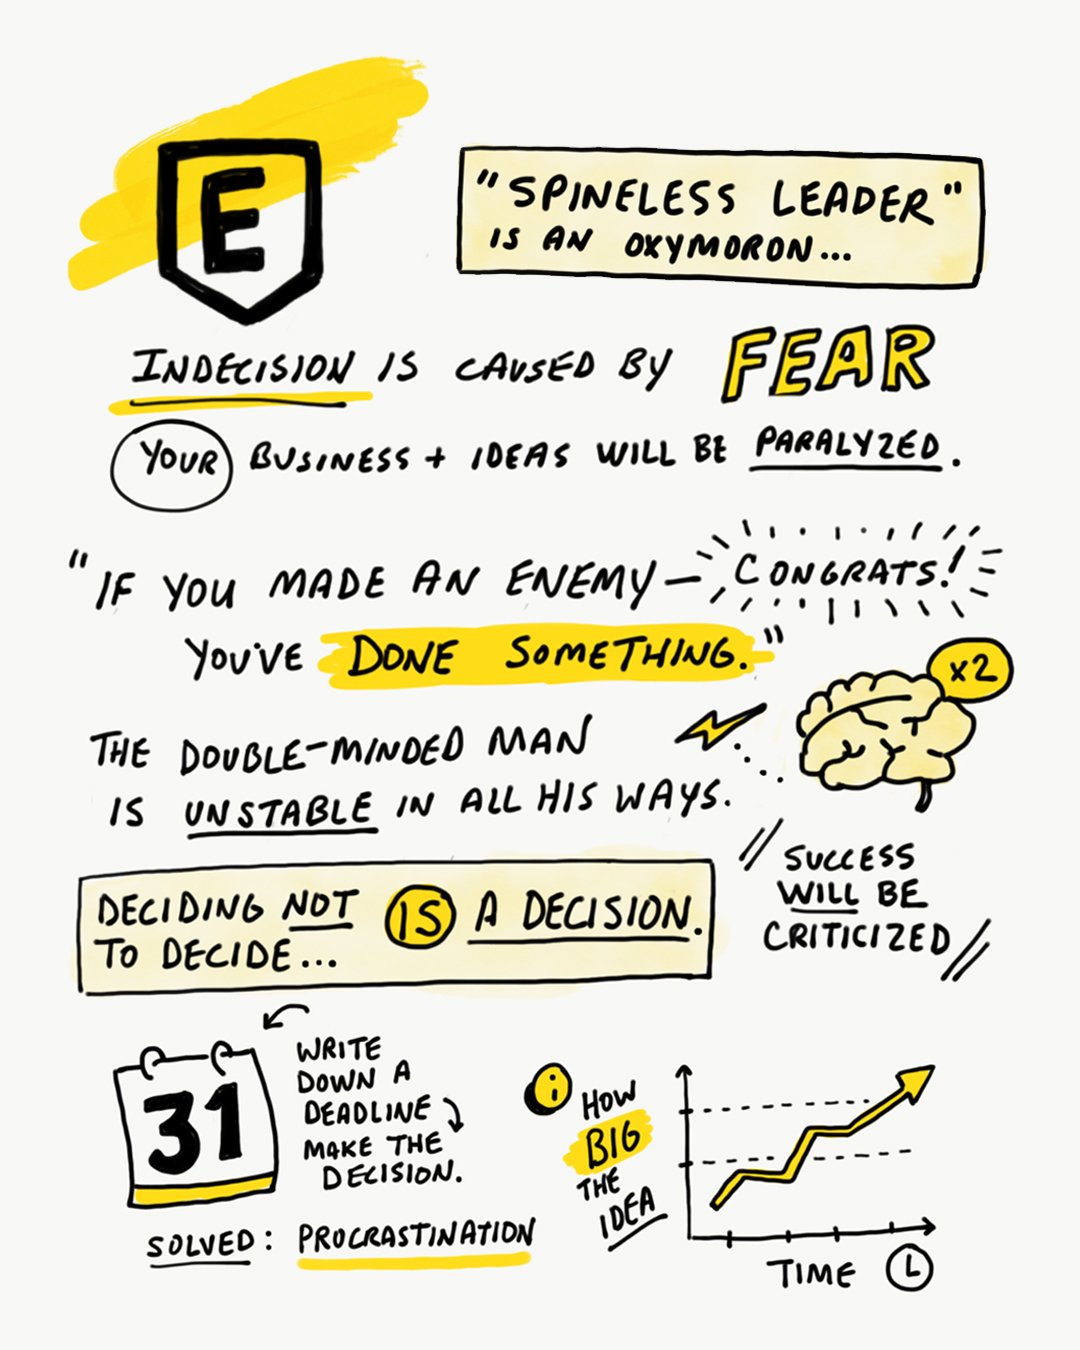 E
"SPINELESS LEADER"
IS AN OXYMORON...
INDECISION IS CAUSED BY FEAR
YOUR BUSINESS + IDEAS WILL BE PARALYZED.
"IF YOU MADE AN ENEMY— CONGRATS!
YOU'VE DONE SOMETHING."
x2
THE DOUBLE-MINDED MAN
IS UNSTABLE IN ALL HIS WAYS.
// SUCCESS
WILL BE
CRITICIZED //
DECIDING NOT IS A DECISION.
TO DECIDE...
31
WRITE
DOWN A
DEADLINE
MAKE THE
DECISION.
SOLVED: PROCRASTINATION
i
HOW
BIG
THE
IDEA
TIME